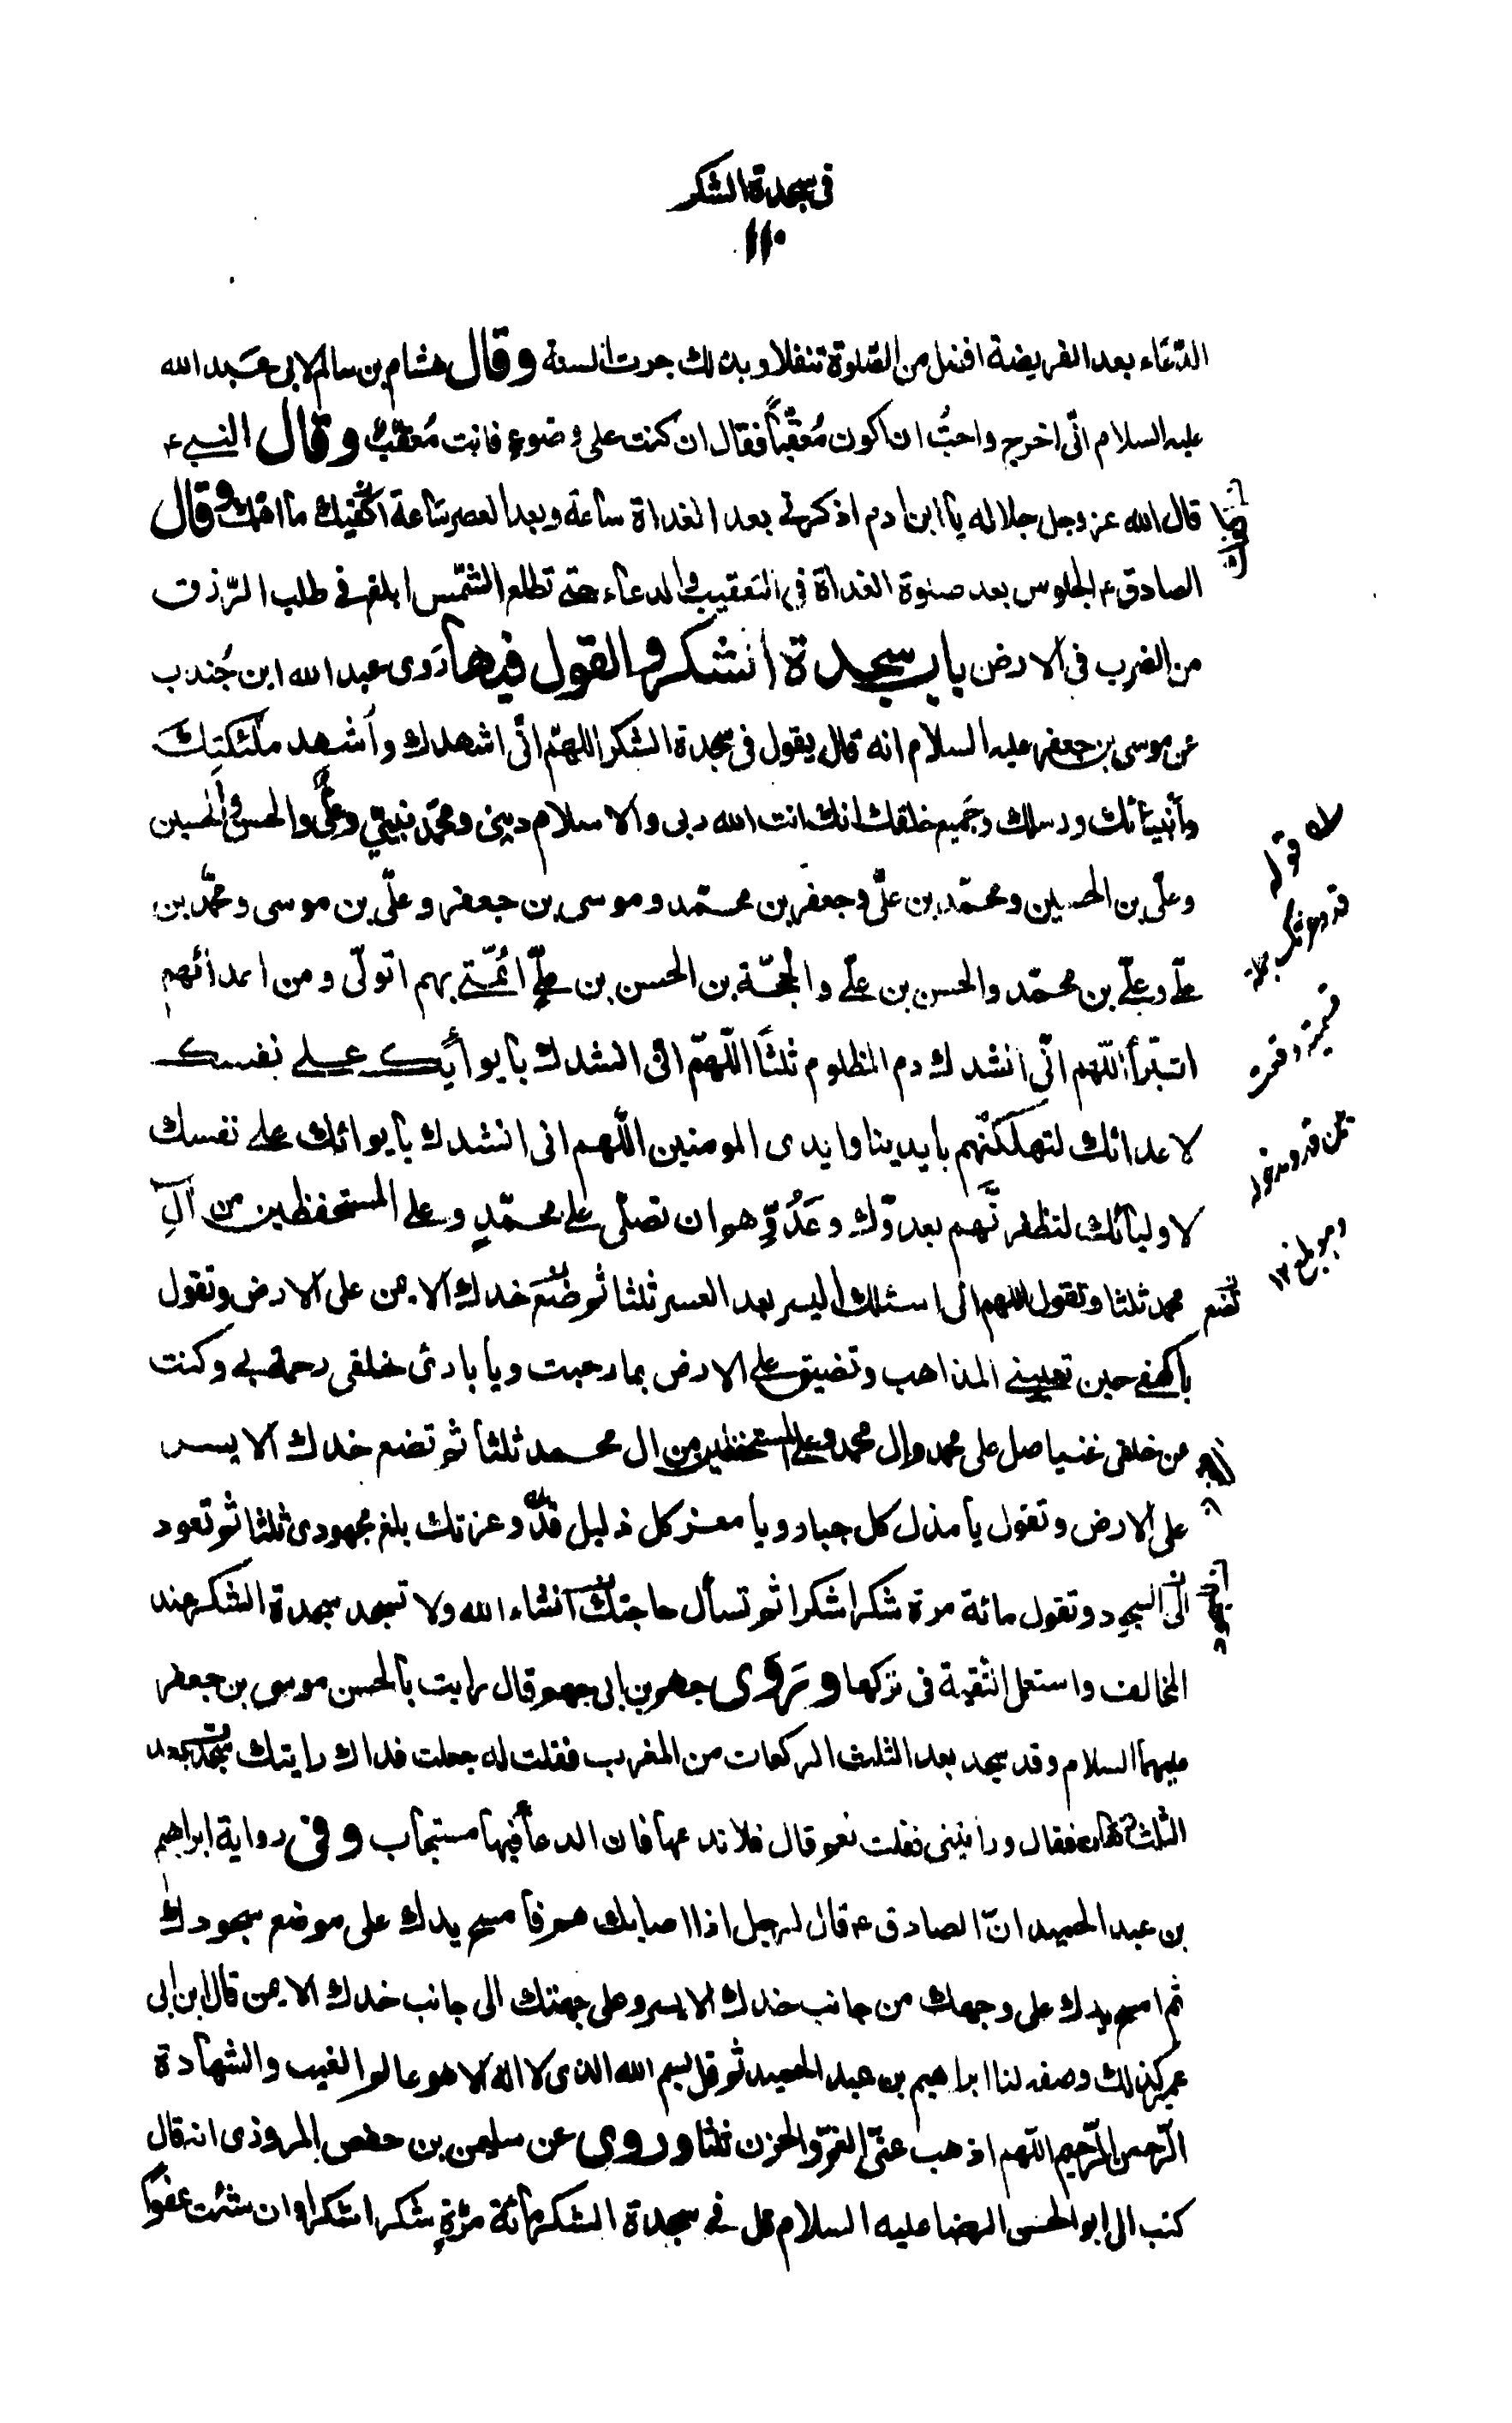 فى سجدة الشكر
۱۱۰
الدّعاء بعد الفريضة افضل من الصّلوة تنفلا وبذلك جرت السنة وقال هشام بن سالم لابى عبد الله
عليه السلام انّى اخرج واحبُّ ان اكون مُعقّباً فقال ان كنت على وضوءٍ فانت مُعقّبٌ وقال النبي ء
قال الله عز وجل جلاله يا ابن ادم اذكرنى بعد الغداة ساعة وبعد العصر ساعة اكفيك ما اهمّك وقال
الصادق ء الجلوس بعد صلوة الغداة فى التعقيب والدعاء حتى تطلع الشّمس ابلغ فى طلب الرّزق
من الضرب فى الارض باب سجدة الشكر والقول فيها رَوى عبد الله ابن جُندب
عن موسى بن جعفر عليه السلام انه قال يقول فى سجدة الشكر اللهمّ انّى اشهدك وأشهد ملئكتك
وأنبيائك ورسلك وجَميع خلقك انك انت الله ربى والاسلام دينى ومحمّد نبيّى وعلىٌّ والحسن والحسين
وعلّى بن الحسين ومحمّد بن علّى وجعفر بن محمّد وموسى بن جعفر وعلّى بن موسى ومحمّد بن
علّى وعلّى بن محمّد والحسن بن علّى والحجّة بن الحسن بن علّى ائمّتى بهم اتولّى ومن اعدائهم
اتبّرأ اللّهم انّى انشدك دم المظلوم ثلثاً اللّهمّ انّى انشدك بايوائك على نفسك
لاعدائك لتهلكنّهم بايدينا وايدى المومنين اللّهم انى انشدك بايوائك على نفسك
لاوليائك لتظفرنَّهم بعدوّك وعَدُوِّهم ان تصلّى على محمّدٍ وعلى المستحفظين من آلِ
محمد ثلثا وتقول اللهم انى اسئلك اليسر بعد العسر ثلثا ثم ضع خدك الايمن على الارض وتقول
يا كهفى حين تعيينى المذاهب وتضيق على الارض بما رحبت ويا بارئ خلقى رحمة بى وكنت
عن خلقى غنيا صل على محمد وال محمد وعلى المستحفظين من ال محمد ثلثا ثم تضع خدك الايسر
على الارض وتقول يا مذل كل جبار ويا معز كل ذليل قد وعزتك بلغ مجهودى ثلثا ثم تعود
الى السجود وتقول مائة مرة شكرا شكرا ثم تسأل حاجتك انشاء الله ولا تسجد سجدة الشكر عند
المخالف واستعل التقية فى تركها ورَوى جهم بن ابى جهم قال رايت بالحسن موسى بن جعفر
عليهما السلام وقد سجد بعد الثلث الركعات من المغرب فقلت له جعلت فداك رايتك سجدت بعد
الثلث فقال ورايتنى فقلت نعم قال فلا تدعها فان الدعأ فيها مستجاب وفى رواية ابراهيم
بن عبد الحميد انّ الصادق ء قال لرجل اذا اصابك هم فامسح يدك على موضع سجودك
ثم امسح يدك على وجهك من جانب خدك الايسر وعلى جبهتك الى جانب خدك الايمن قال ابن ابى
عمير كذلك وصفه لنا ابراهيم بن عبد الحميد ثم قل بسم الله الذى لا اله الا هو عالم الغيب والشهادة
الرّحمن الرّحيم اللّهم اذهب عنّى الغمّ والحزن ثلثا وروى عن سليمن بن حفص المروذى انه قال
كتب الى ابو الحسن الرضا عليه السلام قل فى سجدة الشكر مائة مرّةٍ شكرا شكرا وان شئت عفوا
قوله
تضع